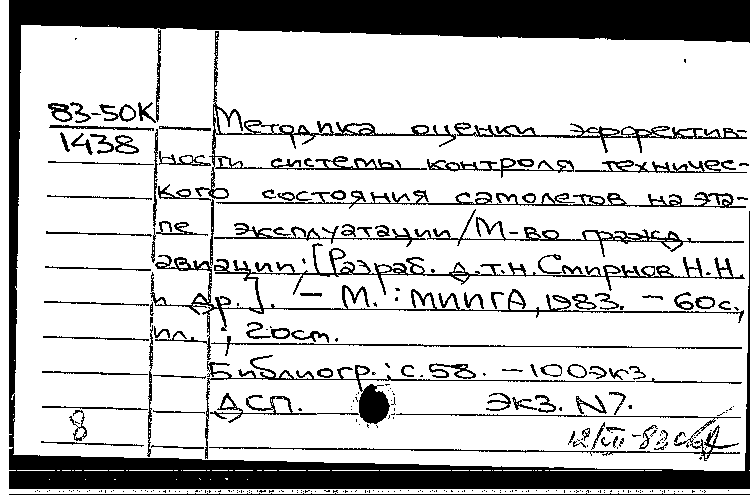 83-50К
1438
Методика оценки эффектив-
ности системы контроля техничес-
кого состояния самолетов на эта-
пе эксплуатации/М-во гражд.
авиации; [Разраб. д.т.н. Смирнов Н.Н.
и др.]. – М.: МИИГА, 1983. – 60с.,
ил.; 20см.
Библиогр.: с.58. – 100экз.
ДСП. экз. N7.
8
12/XII-83